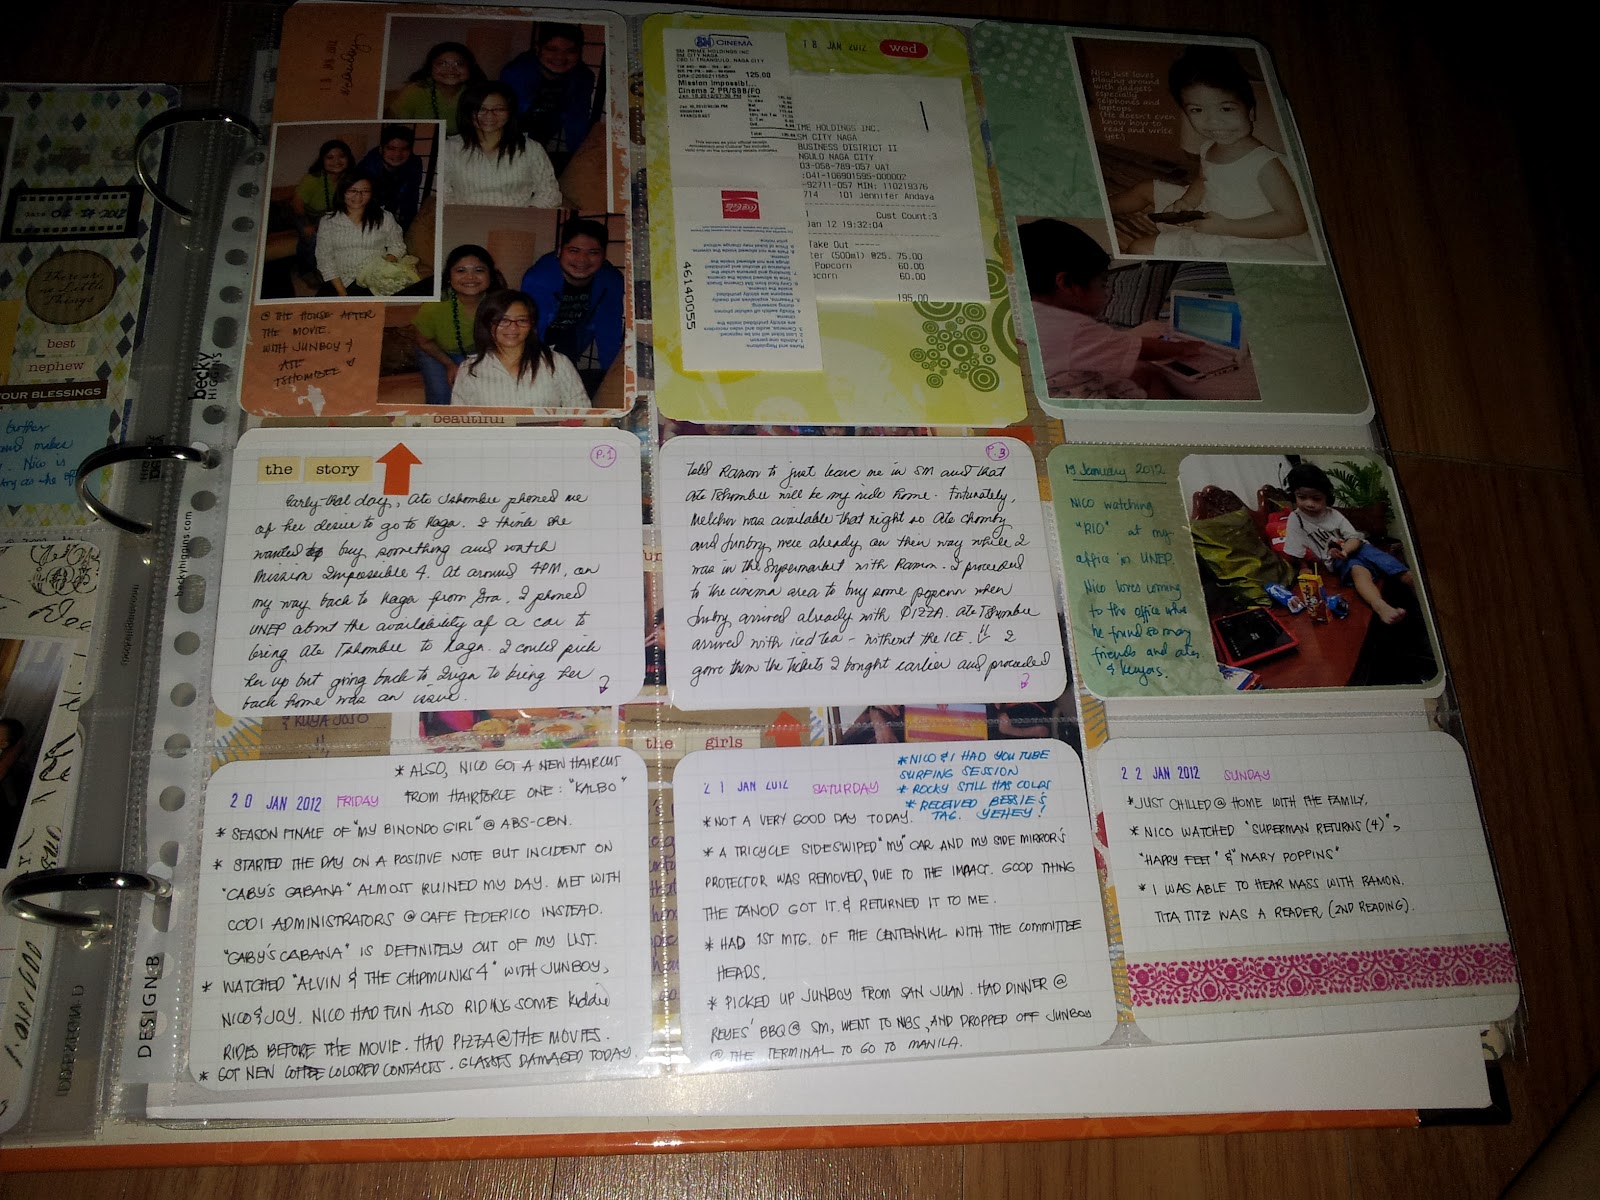 @ THE HOUSE AFTER
THE MOVIE.
WITH JUNBOY &
ATE
TSHOMBEE
SM CINEMA
SM PRIME HOLDINGS INC.
SM CITY NAGA
CBD II TRIANGULO, NAGA CITY
125.00
Mission Impossibl..
Cinema 2 PR/SBB/FO
Coca-Cola
46140055
18 JAN 2012
wed
IME HOLDINGS INC.
SM CITY NAGA
BUSINESS DISTRICT II
NGULO NAGA CITY
03-058-789-057 VAT
:041-106901595-000002
-92711-057 MIN: 110219376
714 101 Jennifer Andaya
Cust Count:3
Jan 12 19:32:04
Take Out -----
ter (500ml) @25. 75.00
Popcorn 60.00
pcorn 60.00
195.00
Nico just loves
playing around
with gadgets
especially
cellphones and
laptops.
(He doesn't even
know how to
read and write
yet!)
DATE 01 14 2012
best
nephew
YOUR BLESSINGS
becky
HIGGINS
beckyhiggins.com
DESIGN B
beautiful
the story
P.1
Early that day, Ate Tshombee phoned me
of her desire to go to Naga. I think she
wanted to buy something and watch
Mission Impossible 4. At around 4PM, on
my way back to Naga from Goa, I phoned
UNEP about the availability of a car to
bring Ate Tshombee to Naga. I could pick
her up but going back to Iriga to bring her
back home was an issue.
P.3
told Ramon to just leave me in SM and that
Ate Tshombee will be my ride home. Fortunately,
Melchor was available that night so Ate Chomby
and Junboy were already on their way while I
was in the Supermarket with Ramon. I proceeded
to the cinema area to buy some popcorn when
Junboy arrived already with PIZZA. Ate Tshombee
arrived with iced tea - without the ICE. I
gave them the tickets I bought earlier and proceeded
19 January 2012
NICO watching
"RIO" at my
office in UNEP.
Nico loves coming
to the office coz
he found so many
friends and ates
& kuyas.
& KUYA JOJO
the girls
20 JAN 2012 FRIDAY
* ALSO, NICO GOT A NEW HAIRCUT
FROM HAIRFORCE ONE: "KALBO"
* SEASON FINALE OF "MY BINONDO GIRL" @ ABS-CBN.
* STARTED THE DAY ON A POSITIVE NOTE BUT INCIDENT ON
"GABY'S CABANA" ALMOST RUINED MY DAY. MET WITH
CCDI ADMINISTRATORS @ CAFE FEDERICO INSTEAD.
"GABY'S CABANA" IS DEFINITELY OUT OF MY LIST.
* WATCHED "ALVIN & THE CHIPMUNKS 4" WITH JUNBOY,
NICO & JOY. NICO HAD FUN ALSO RIDING SOME KIDDIE
RIDES BEFORE THE MOVIE. HAD PIZZA @ THE MOVIES.
* GOT NEW COFFEE COLORED CONTACTS. GLASSES DAMAGED TODAY.
21 JAN 2012 SATURDAY
* NICO & I HAD YOUTUBE
SURFING SESSION
* ROCKY STILL HAS COLDS
* RECEIVED BESSIE'S
TAG. YEHEY!
* NOT A VERY GOOD DAY TODAY.
* A TRICYCLE SIDESWIPED "MY" CAR AND MY SIDE MIRROR'S
PROTECTOR WAS REMOVED, DUE TO THE IMPACT. GOOD THING
THE TANOD GOT IT & RETURNED IT TO ME.
* HAD 1ST MTG. OF THE CENTENNIAL WITH THE COMMITTEE
HEADS.
* PICKED UP JUNBOY FROM SAN JUAN. HAD DINNER @
REYES' BBQ @ SM, WENT TO NBS, AND DROPPED OFF JUNBOY
@ THE TERMINAL TO GO TO MANILA.
22 JAN 2012 SUNDAY
* JUST CHILLED @ HOME WITH THE FAMILY.
* NICO WATCHED "SUPERMAN RETURNS (4)",
"HAPPY FEET" & "MARY POPPINS"
* I WAS ABLE TO HEAR MASS WITH RAMON.
TITA TITZ WAS A READER (2ND READING).